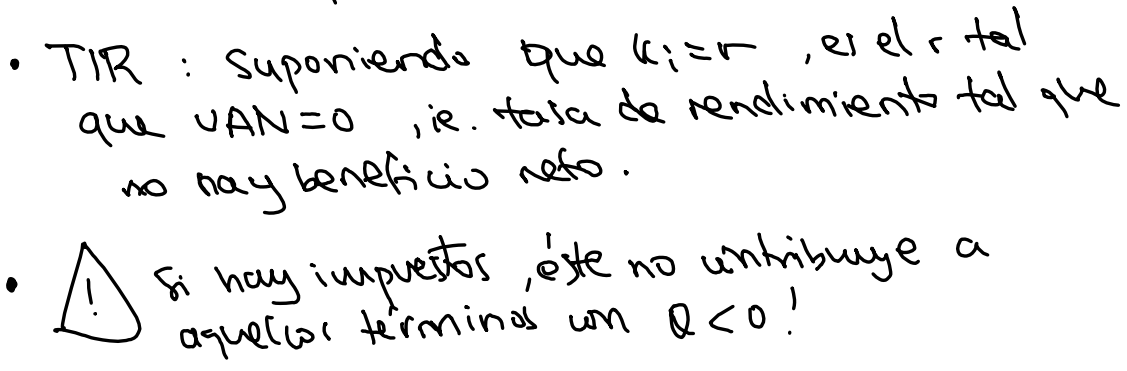 • TIR : suponiendo que Ki=r , es el r tal
que VAN=0 , ie. tasa de rendimiento tal que
no hay beneficio neto.
• ! Si hay impuestos , éste no contribuye a
aquellos términos con Q<0!